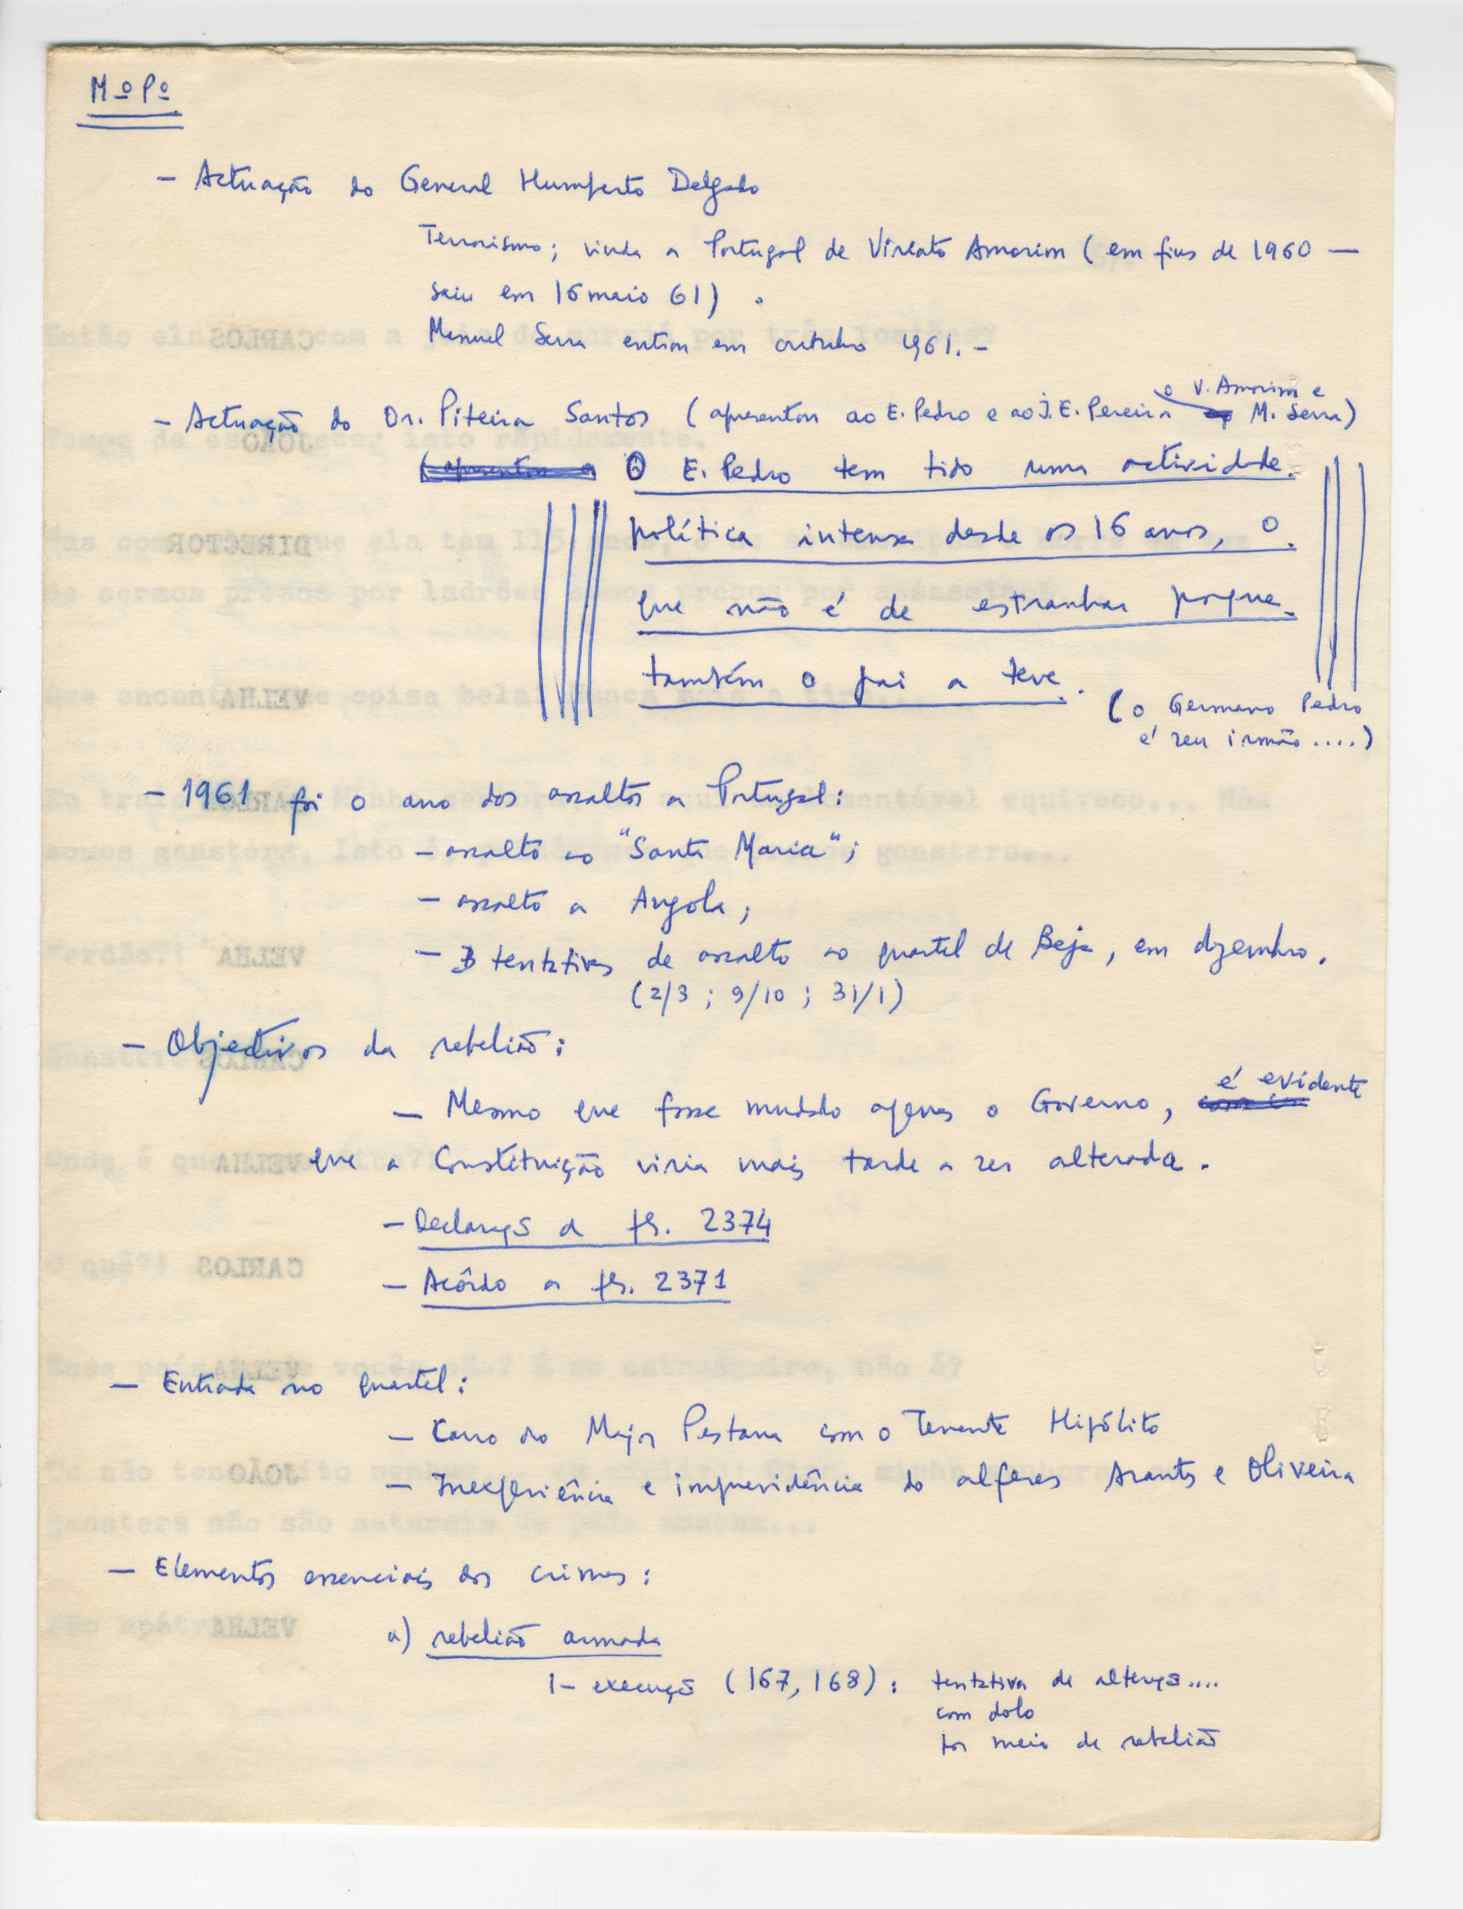 Mº Pº
- Actuação do General Humberto Delgado
Terrorismo; vinda a Portugal de Viriato Amorim (em fins de 1960 —
saiu em 16 maio 61).
Manuel Serra entrou em outubro 1961. -
o V. Amorim e
- Actuação do Dr. Piteira Santos (apresentou ao E. Pedro e ao J. E. Pereira M. Serra)
(apresentou o O E. Pedro tem tido uma actividade
política intensa desde os 16 anos, o
que não é de estranhar porque
também o pai a teve.
(o Germano Pedro
é seu irmão....)
- 1961 foi o ano dos assaltos a Portugal:
- assalto ao "Santa Maria";
- assalto a Angola;
- 3 tentativas de assalto ao quartel de Beja, em dezembro.
(2/3 ; 9/10 ; 31/1)
- Objectivos da rebelião:
é evidente
- Mesmo que fosse mudado apenas o Governo,
que a Constituição viria mais tarde a ser alterada.
- Declarações a fs. 2374
- Acôrdo a fs. 2371
- Entrada no quartel:
- Carro do Major Pestana com o Tenente Hipólito
- Inexperiência e imprevidência do alferes Arantes e Oliveira
- Elementos essenciais dos crimes:
a) rebelião armada
1- execução (167, 168): tentativa de alteração....
com dolo
por meio de rebelião